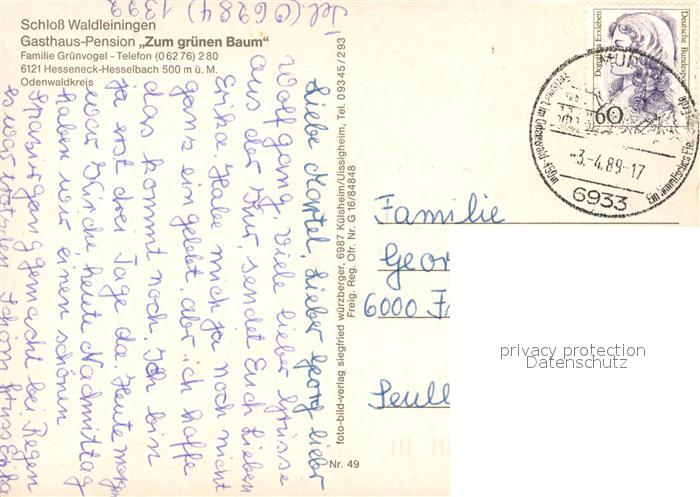 Schloß Waldleiningen
Gasthaus-Pension „Zum grünen Baum“
Familie Grünvogel - Telefon (0 62 76) 2 80
6121 Hesseneck-Hesselbach 500 m ü. M.
Odenwaldkreis
Tel. (06284) 1392
Liebe Martel, lieber Georg lieber
Wolfgang, viele lieber Grüsse
aus der Kur, sendet Euch Lieben
Erika. Habe mich ja noch nicht
ganz eingelebt, aber ich hoffe
das kommt noch. Ich bin
ja erst drei Tage da. Heute morgen
war Kirche heute Nachmittag
haben wir einen schönen
Spaziergang gemacht bei Regen
es war trotzdem schön Gruss Erika
foto-bild-verlag siegfried würzberger, 6987 Külsheim/Uissigheim, Tel. 0 93 45 / 2 93
Freig. Reg. Ofr. Nr. G 16/84848
Nr. 49
Dorothea Erxleben
Deutsche Bundespost
60
-3.-4.89-17
6933
Familie
Geor
6000 F
privacy protection
Datenschutz